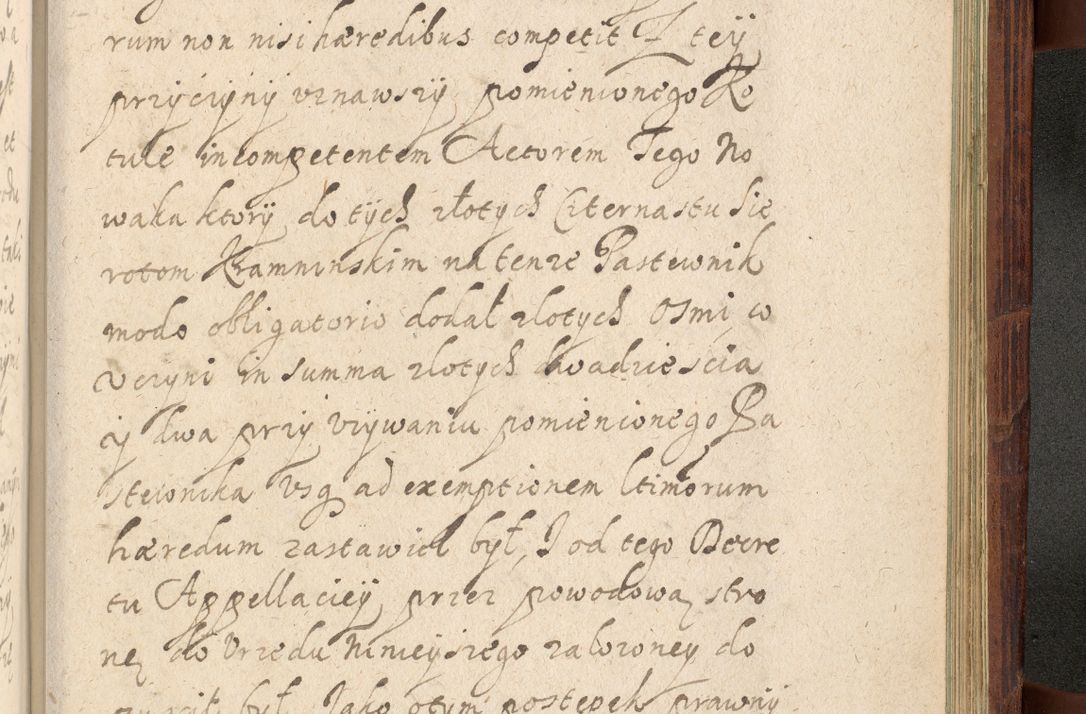 rum non nisi hæredibus competit Z teÿ
przÿcżÿnÿ vznawszÿ pomienionego Ko
tule incompetentem Actorem Tego No
waka ktorÿ do tÿch złotych Czternastu Sie
rotom Kramninskim na tenze Pastewnik
modo obligatorio dodał zlotych Osmi w
vczyni in Summa zlotych dwadziescia
ÿ dwa przÿ vzÿwaniu pomienionego Pa
stewnika vsq ad exemptionem ltimorum
hæredum zastawieł był, I od tego Decre
tu Appellacieÿ przez powodową stro
nę do Vrzedu Ninieÿszego załozoneÿ do
był Jako otym postępek prawnÿ